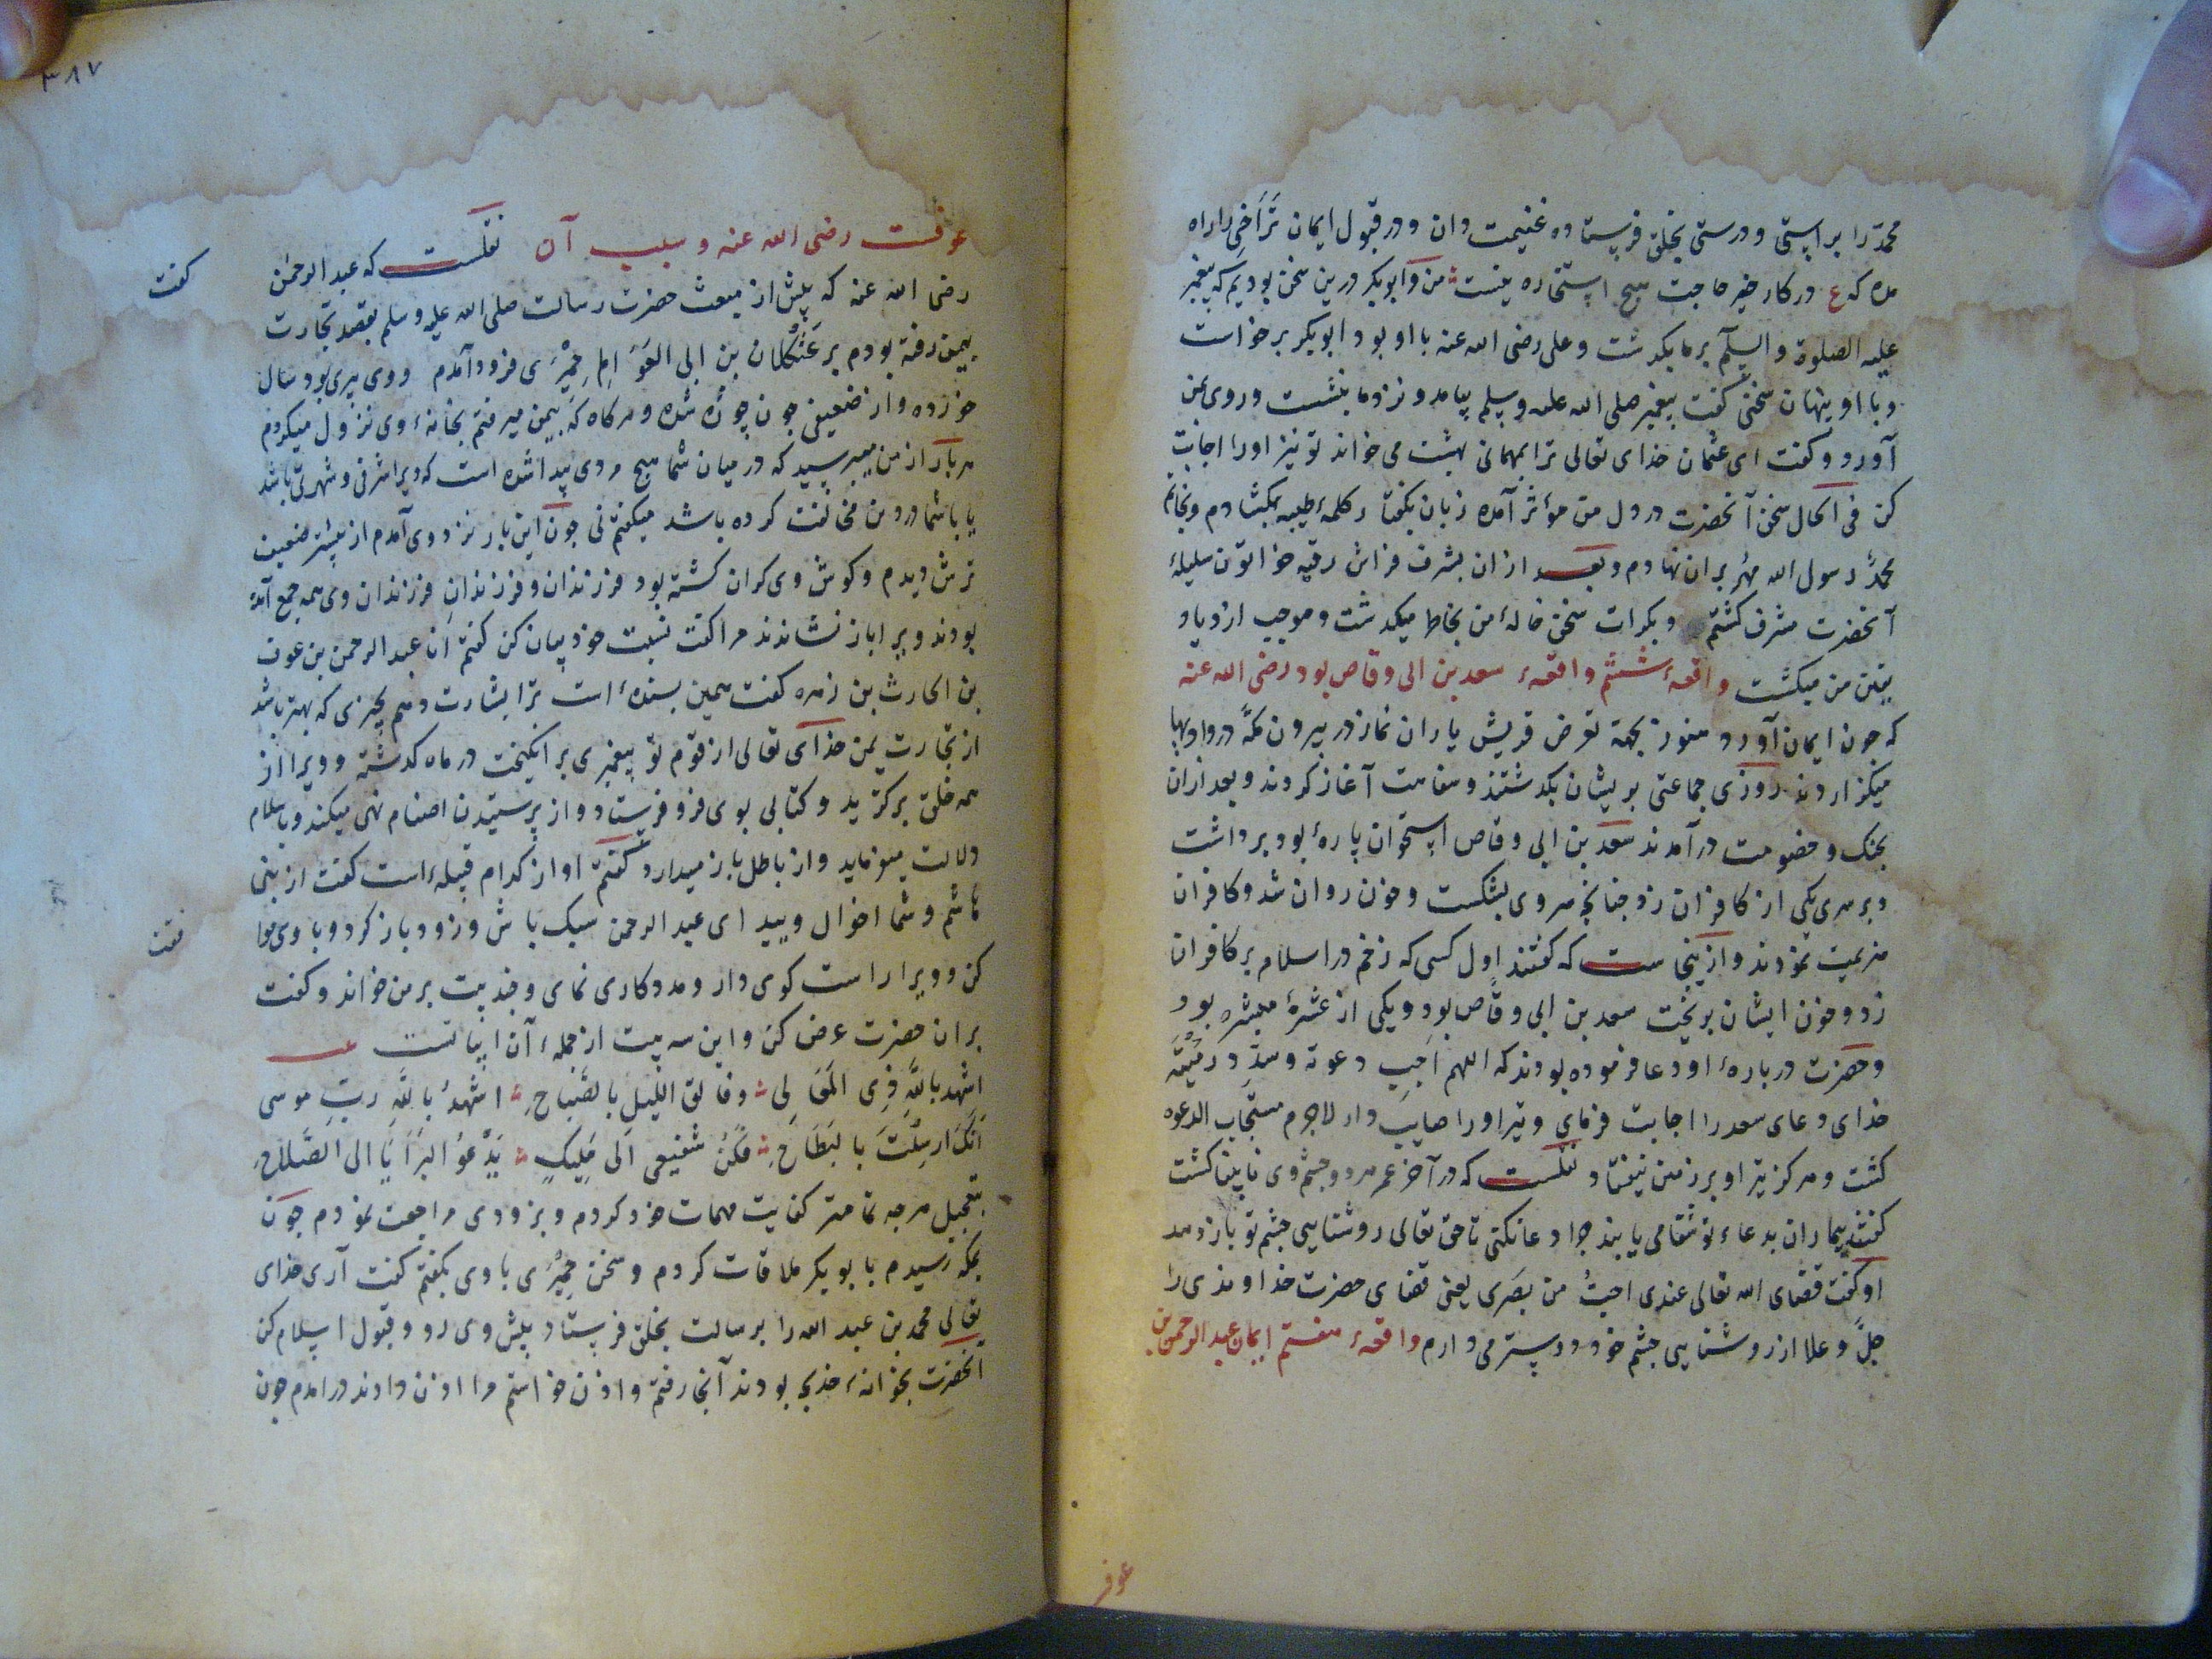 محمد را براستی و درستی بخلق فرستاده غنیمت دان و در قبول ایمان تراخی را راه
مده که ع در کار خیر حاجت هیچ استخاره نیست من و ابوبکر درین سخن بودیم که پیغمبر
علیه الصلوة والسلم بر ما بکدشت و علی رضی الله عنه با او بود ابوبکر برخواست
و با او پنهان سخنی گفت پیغمبر صلی الله علیه وسلم بیامد و نزد ما بنشست و روی بمن
آورد و کفت ای عثمان خدای تعالی ترا بمهمانی بهشت می خواند تو نیز او را اجابت
کن فی الحال سخن آنحضرت در دل من مؤثر آمده زبان بکفتار کلمهٔ طیبه بکشادم و بخاتم
محمد رسول الله مهر بران نهادم و بعد ازان بشرف فراش رقیه خواتون سلیلهٔ
آنحضرت مشرف کشتم و بکرات سخن خالهٔ من بخاطر میکدشت و موجب ازدیاد
یقین من میکشت واقعهٔ ششم واقعهٔ سعد بن ابی وقاص بود رضی الله عنه
که جون ایمان آورد هنوز بجهة تعرض قریش یاران نماز در بیرون مکه در وادیها
میکزاردند روزی جماعتی بریشان بکدشتند و سفاهت آغاز کردند و بعد ازان
بجنک و خصومت درآمدند سعد بن ابی وقاص استخوان پارهٔ بود برداشت
و بر سر یکی از کافران زد جنانجه سر وی بشکست و خون روان شد و کافران
هزیمت نمودند و ازینجاست که کفتند اول کسی که زخم در اسلام بر کافران
زد و خون ایشان بریخت سعد بن ابی وقاص بود و یکی از عشرهٔ مبشره بود
و حضرت دربارهٔ او دعا فرموده بودند که اللهم اجب دعوته و سدد رمیته
خدای دعای سعد را اجابت فرمای و تیر او را صایب دار لاجرم مستجاب الدعوه
کشت و هرکز تیر او بر زمین نیفتاد نقلست که در آخر عمر هر دو جشم وی نابینا کشت
کفتند بیماران بدعاء تو شفا می یابند جرا دعا نکنی تا حق تعالی روشنایی جشم تو باز دهد
او کفت قضای الله تعالی عندی احب من بصری یعنی قضای حضرت خداوندی را
جل و علا از روشنایی جشم خود دوستر می دارم واقعهٔ هفتم ایمان عبد الرحمن بن
عوف
٣٨٧
عوفست رضی الله عنه و سبب آن نقلست که عبد الرحمن
رضی الله عنه که پیش از مبعث حضرت رسالت صلی الله علیه وسلم بقصد تجارت
بیمن رفته بودم بر عثکلان بن ابی العوام حمیری فرود آمدم و وی پیری بود سال
خورده و از ضعیفی جون جوزه شده و هرکاه که بیمن میرفتم بخانهٔ وی نزول میکردم
هر بار از من میپرسید که در میان شما هیج مردی پیدا شده است که ویرا شرفی و شهرتی باشد
یا با شما در دین مخالفت کرده باشد میکفتم نی جون این بار نزد وی آمدم از پیشتر ضعیف
ترش دیدم و کوش وی کران کشته بود فرزندان و فرزندان فرزندان وی همه جمع آمده
بودند ویرا باز نشاندند مرا کفت نسبت خود بیان کن کفتم ان عبد الرحمن بن عوف
بن الحارث بن زهره کفت همین بسندهٔ است ترا بشارت دهم بجیزی که بهتر باشد
از تجارت یمن خدای تعالی از قوم تو پیغمبری برانکیخت در ماه کدشته و ویرا از
همه خلق برکزید و کتابی بوی فرو فرستاد و از پرستیدن اصنام نهی میکند و باسلام
دلالت مینماید و از باطل باز میدارد کفتم او از کدام قبیلهٔ است کفت از بنی
هاشم و شما اخوال ویید ای عبد الرحمن سبک باش و زود باز کرد و با وی موا
کن و ویرا راست کوی دار و مددکاری نمای و جند بیت بر من خواند و کفت
بران حضرت عرض کن و این سه بیت از جملهٔ آن ابیاتست
اشهد بالله ذی المعالی و فالق اللیل بالصباح اشهد بالله رب موسی
انک ارسلت بالبطاح فکن شفیعی الی ملیک یدعو البرایا الی الصلاح
بتعجیل هرجه تمامتر کفایت مهمات خود کردم و بزودی مراجعت نمودم جون
بمکه رسیدم با بوبکر ملاقات کردم و سخن حمیری با وی بکفتم کفت آری خدای
تعالی محمد بن عبد الله را برسالت بخلق فرستاد پیش وی رو و قبول اسلام کن
آنحضرت بخانهٔ خدیجه بودند آنجا رفتم و اذن خواستم مرا اذن دادند درآمدم جون
کفت
فقت